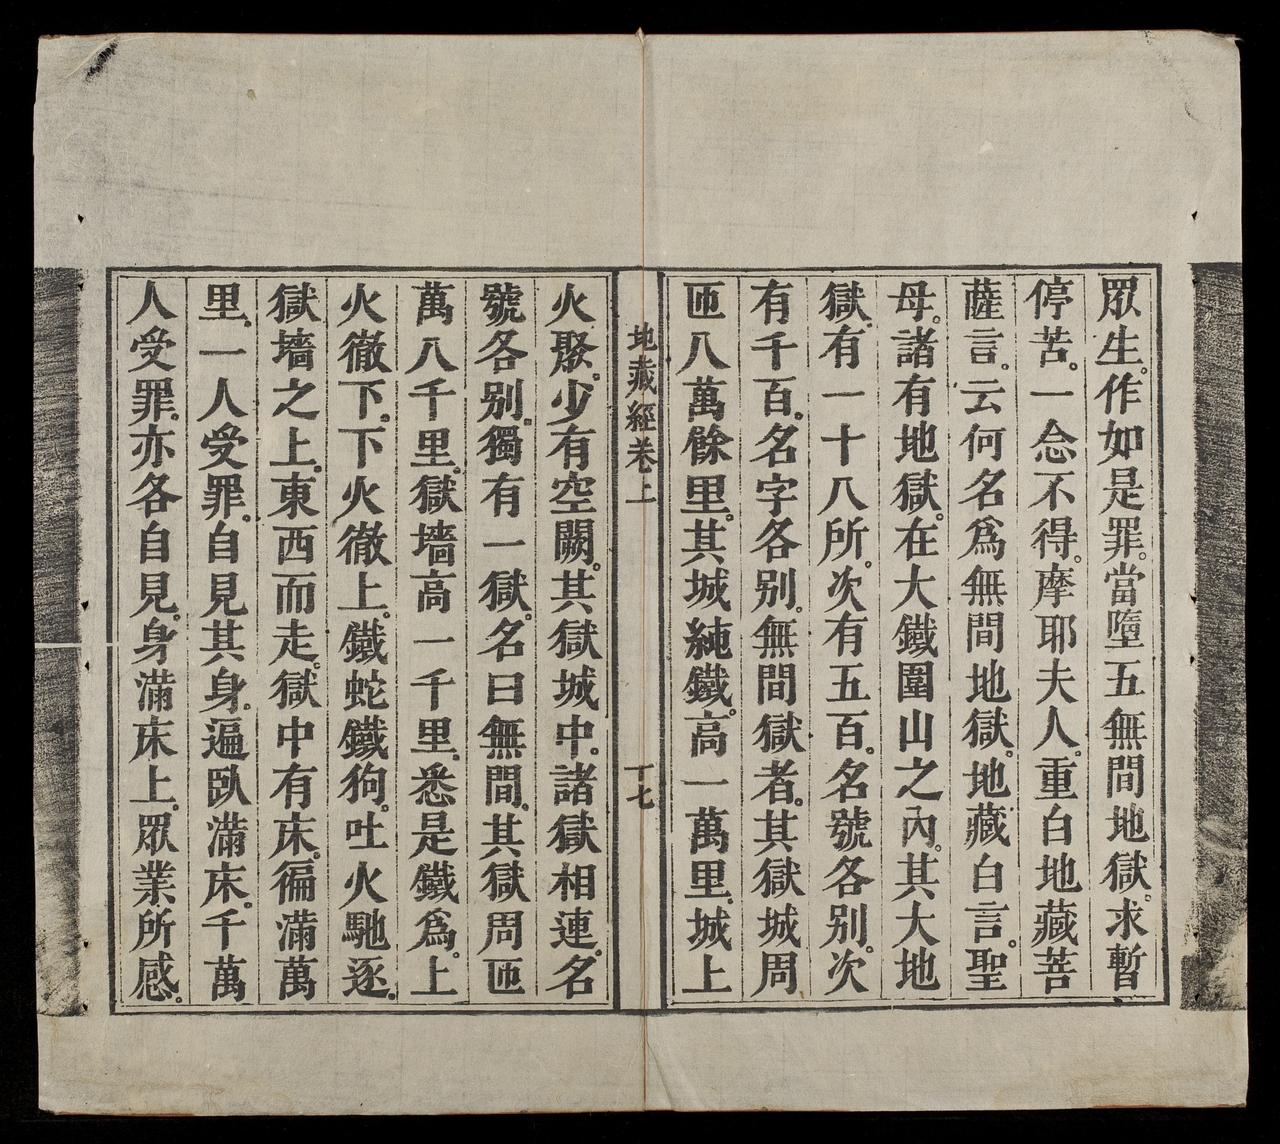 眾生。作如是罪。當墮五無間地獄。求暫
停苦。一念不得。摩耶夫人。重白地藏菩
薩言。云何名為無間地獄。地藏白言。聖
母。諸有地獄。在大鐵圍山之內。其大地
獄。有一十八所。次有五百。名號各別。次
有千百。名字各別。無間獄者。其獄城周
匝八萬餘里。其城純鐵。高一萬里。城上
地藏經卷上
十七
火聚。少有空闕。其獄城中。諸獄相連。名
號各別。獨有一獄。名曰無間。其獄周匝
萬八千里。獄墻高一千里。悉是鐵為。上
火徹下。下火徹上。鐵蛇鐵狗。吐火馳逐。
獄墻之上。東西而走。獄中有床。徧滿萬
里。一人受罪。自見其身。遍臥滿床。千萬
人受罪。亦各自見。身滿床上。眾業所感。